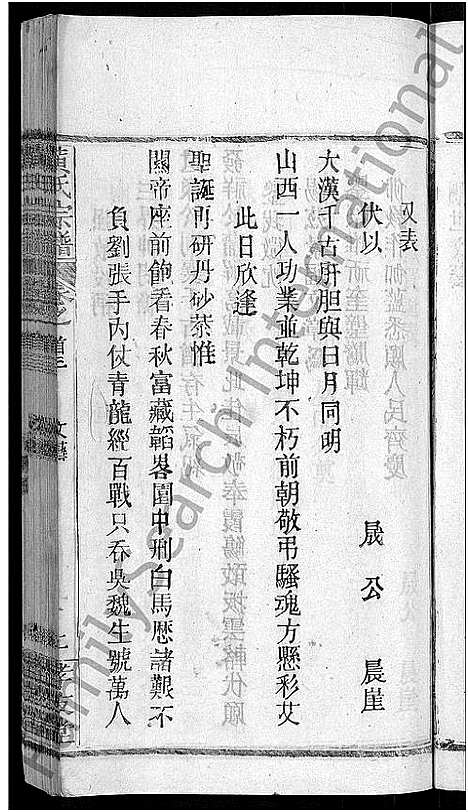 又表
伏以 晟公 晨崖
大漢千古肝胆與日月同明
山西一人功業並乾坤不朽前朝敬弔騷魂方懸彩艾
此日欣逢
聖誕再研丹砂恭惟
關帝座前飽看春秋富藏韜畧園中刑白馬歷諸艱不
負劉張手內仗青龍經百戰只吞吳魏生號萬人
黃氏宗譜
卷之首
FamilySearch International